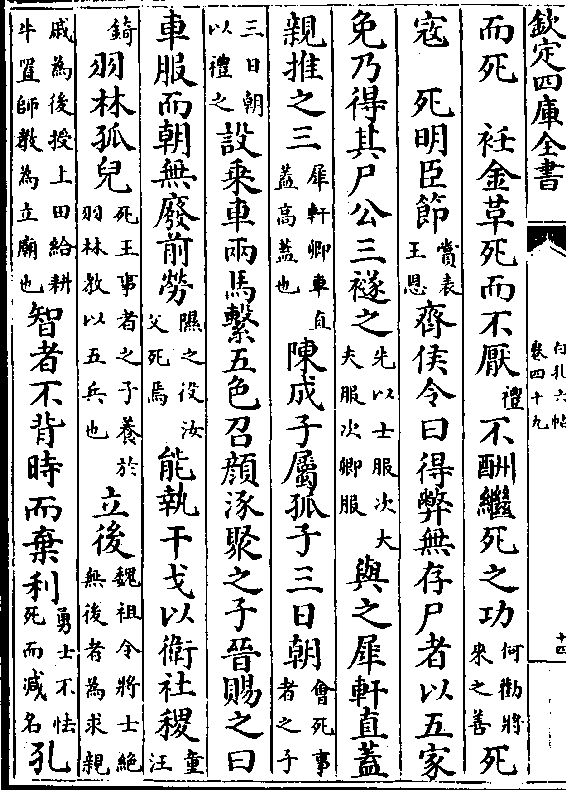 欽定四庫全書
白孔六帖
卷四十九
十四
而死　衽金草死而不厭禮不酬繼死之功何勸將來之善死
寇　死明臣節賞表王恩齊侯令曰得弊無存尸者以五家
免乃得其尸公三襚之先以士服次大夫服次卿服與之犀軒直蓋
親推之三犀軒卿車直蓋高蓋也陳成子屬孤子三日朝會死事者之子
三日朝以禮之設乘車兩馬繫五色召顔涿聚之子晉賜之曰
車服而朝無廢前勞隰之役汝父死焉能執干戈以衛社稷童汪
錡羽林孤兒死王事者之子養於羽林教以五兵也立後魏祖令將士絕無後者為求親
戚為後授上田給耕牛置師教為立廟也智者不背時而棄利勇士不怯死而減名孔